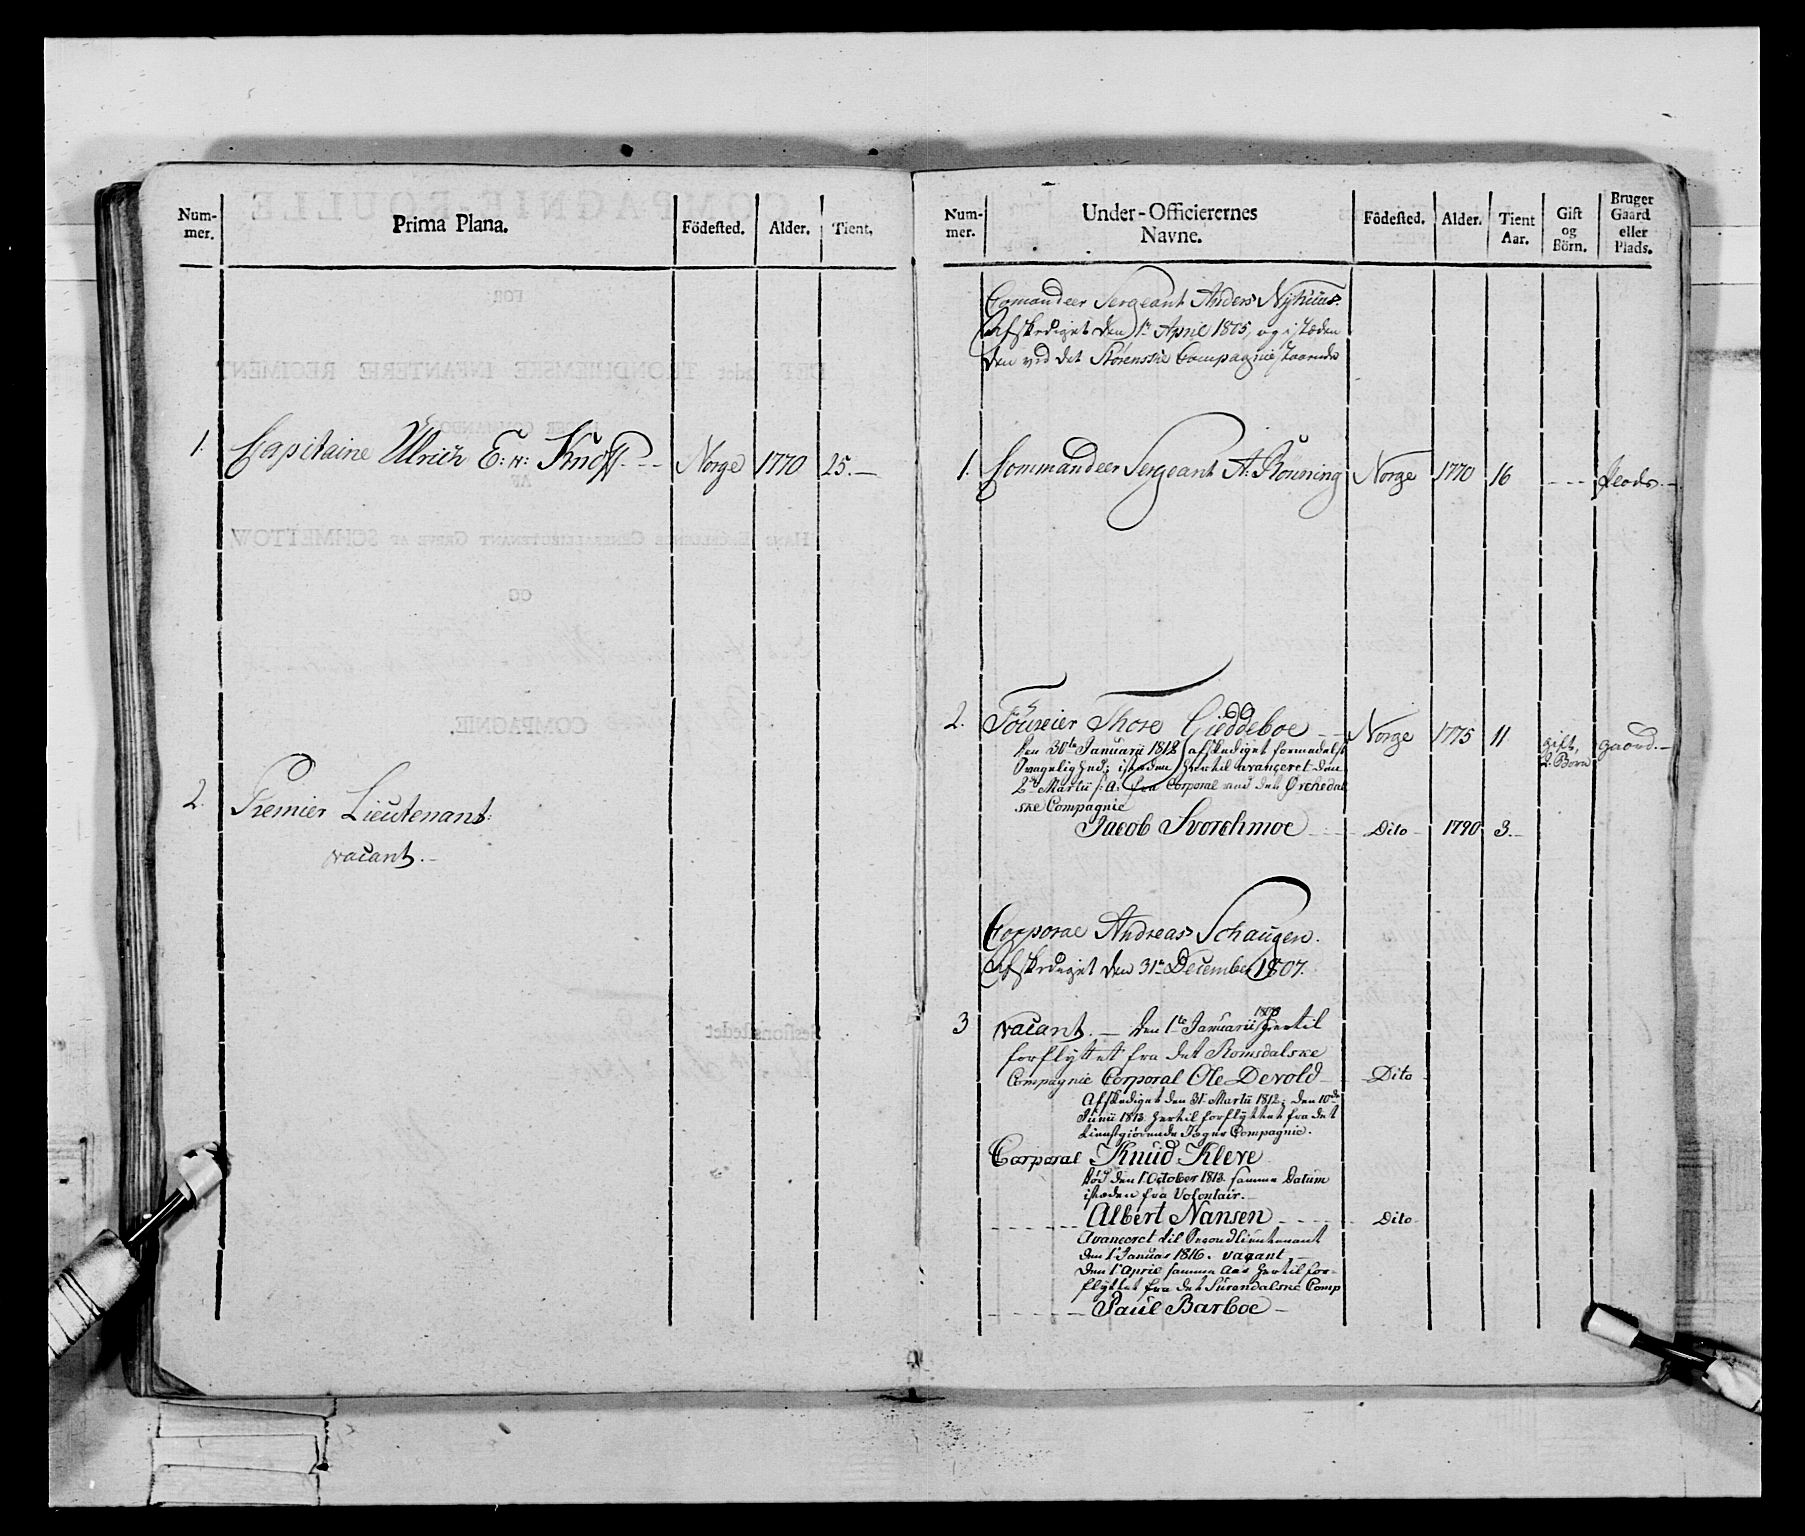 Num-
mer.
Prima Plana.
Födested.
Alder.
Tient.
1.
Capitaine Ulrich E: H: Knoff.
Norge
1770
25.
2.
Premier Lieutenant:
vacant.
Num-
mer.
Under-Officierernes
Navne.
Födested.
Alder.
Tient
Aar.
Gift
og
Börn.
Bruger
Gaard
eller
Plads.
Comandeer Sergeant Anders Nyhuus.
Afskediget den 1te April 1805, og i stæden
den ved det Störenske Compagnie staaende
1.
Commandeer Sergeant A: Rönning
Norge
1770
16
Plads.
2.
Foureier Thore Gieddeboe
Norge
1775
11
gift,
2. Börn
gaard.
den 30te Januarii 1812 afskediget formedelst
Svagelighed; istæden hertil avanceret den
2den Martii s: A: fra Corporal ved det Ørchedal
ske Compagnie
Jacob Svorchmoe
Dito
1790
3.
Corporal Andreas Schaugen.
Afskediget den 31te December 1807.
3
vacant. — den 1te Januarii 1808 hertil
forflyttet fra det Romsdalske
Compagnie Corporal Ole Devold
Dito
Afskediget den 31 Martii 1812; den 10de
Junii 1813 hertil forflyttet fra det
tienstgiörende Jæger Compagnie.
Corporal Knud Kleve
död den 1 October 1813. samme Datum
istæden fra Volontair.
Albert Nansen
Dito
Avanceret til Secondlieutenant
den 1 Januar 1816. vacant
den 1 April samme Aar hertil for-
flyttet fra det Surendalske Comp
Paul Barboe